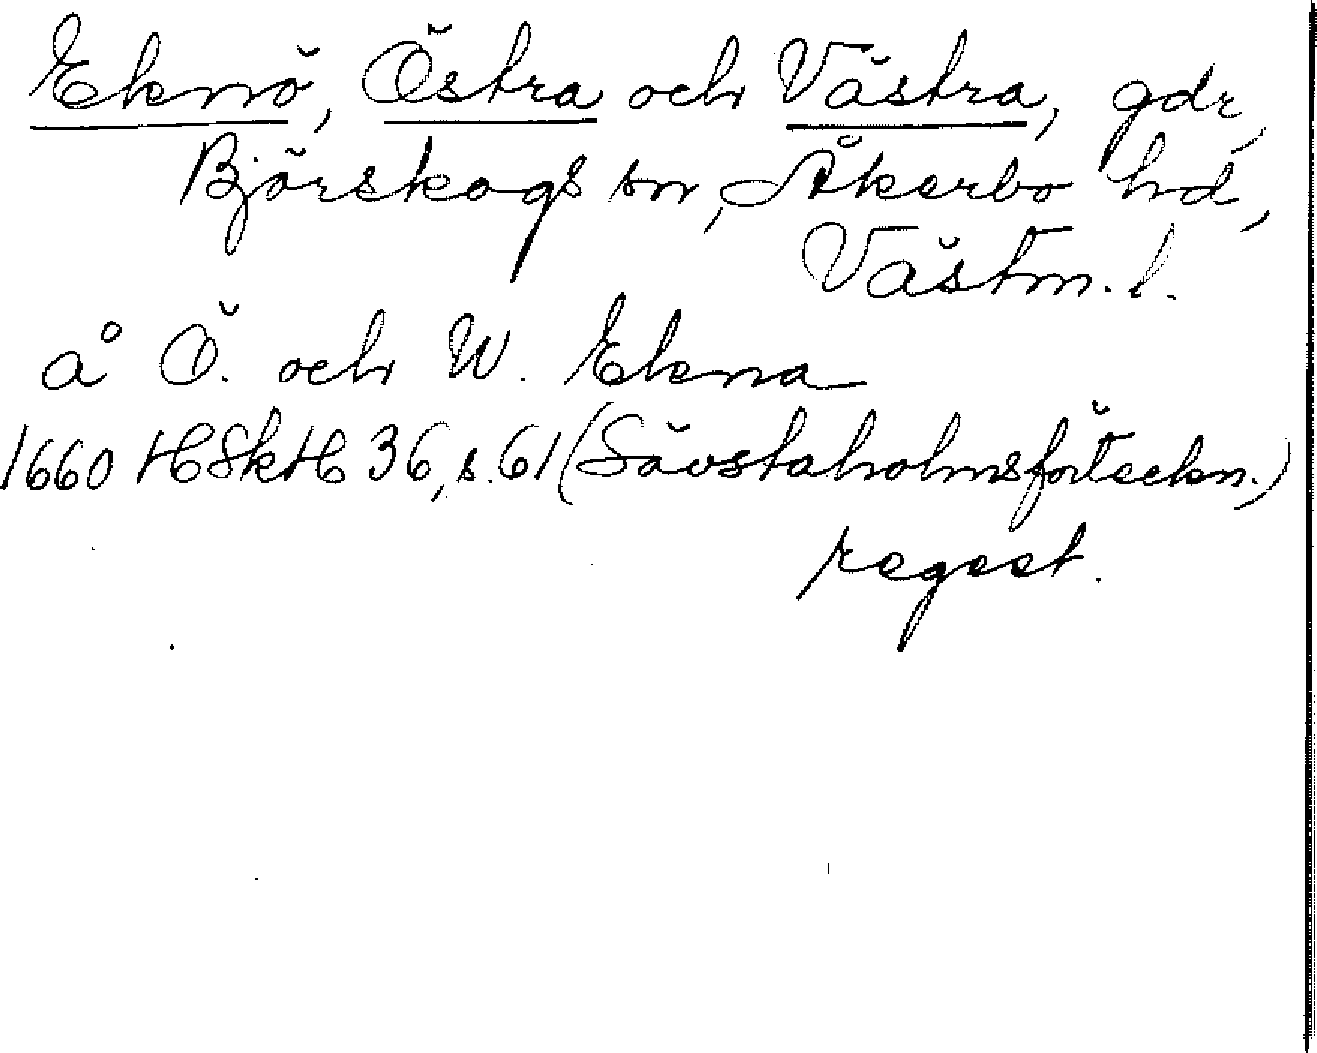 Eknö, Östra och Västra, gdr,
Björskogs sn, Åkerbo hd,
Västm. l.
å Ö. och W. Ekna
1660 HSkH 36, s. 61 (Sävstaholmsförteckn.)
regest.